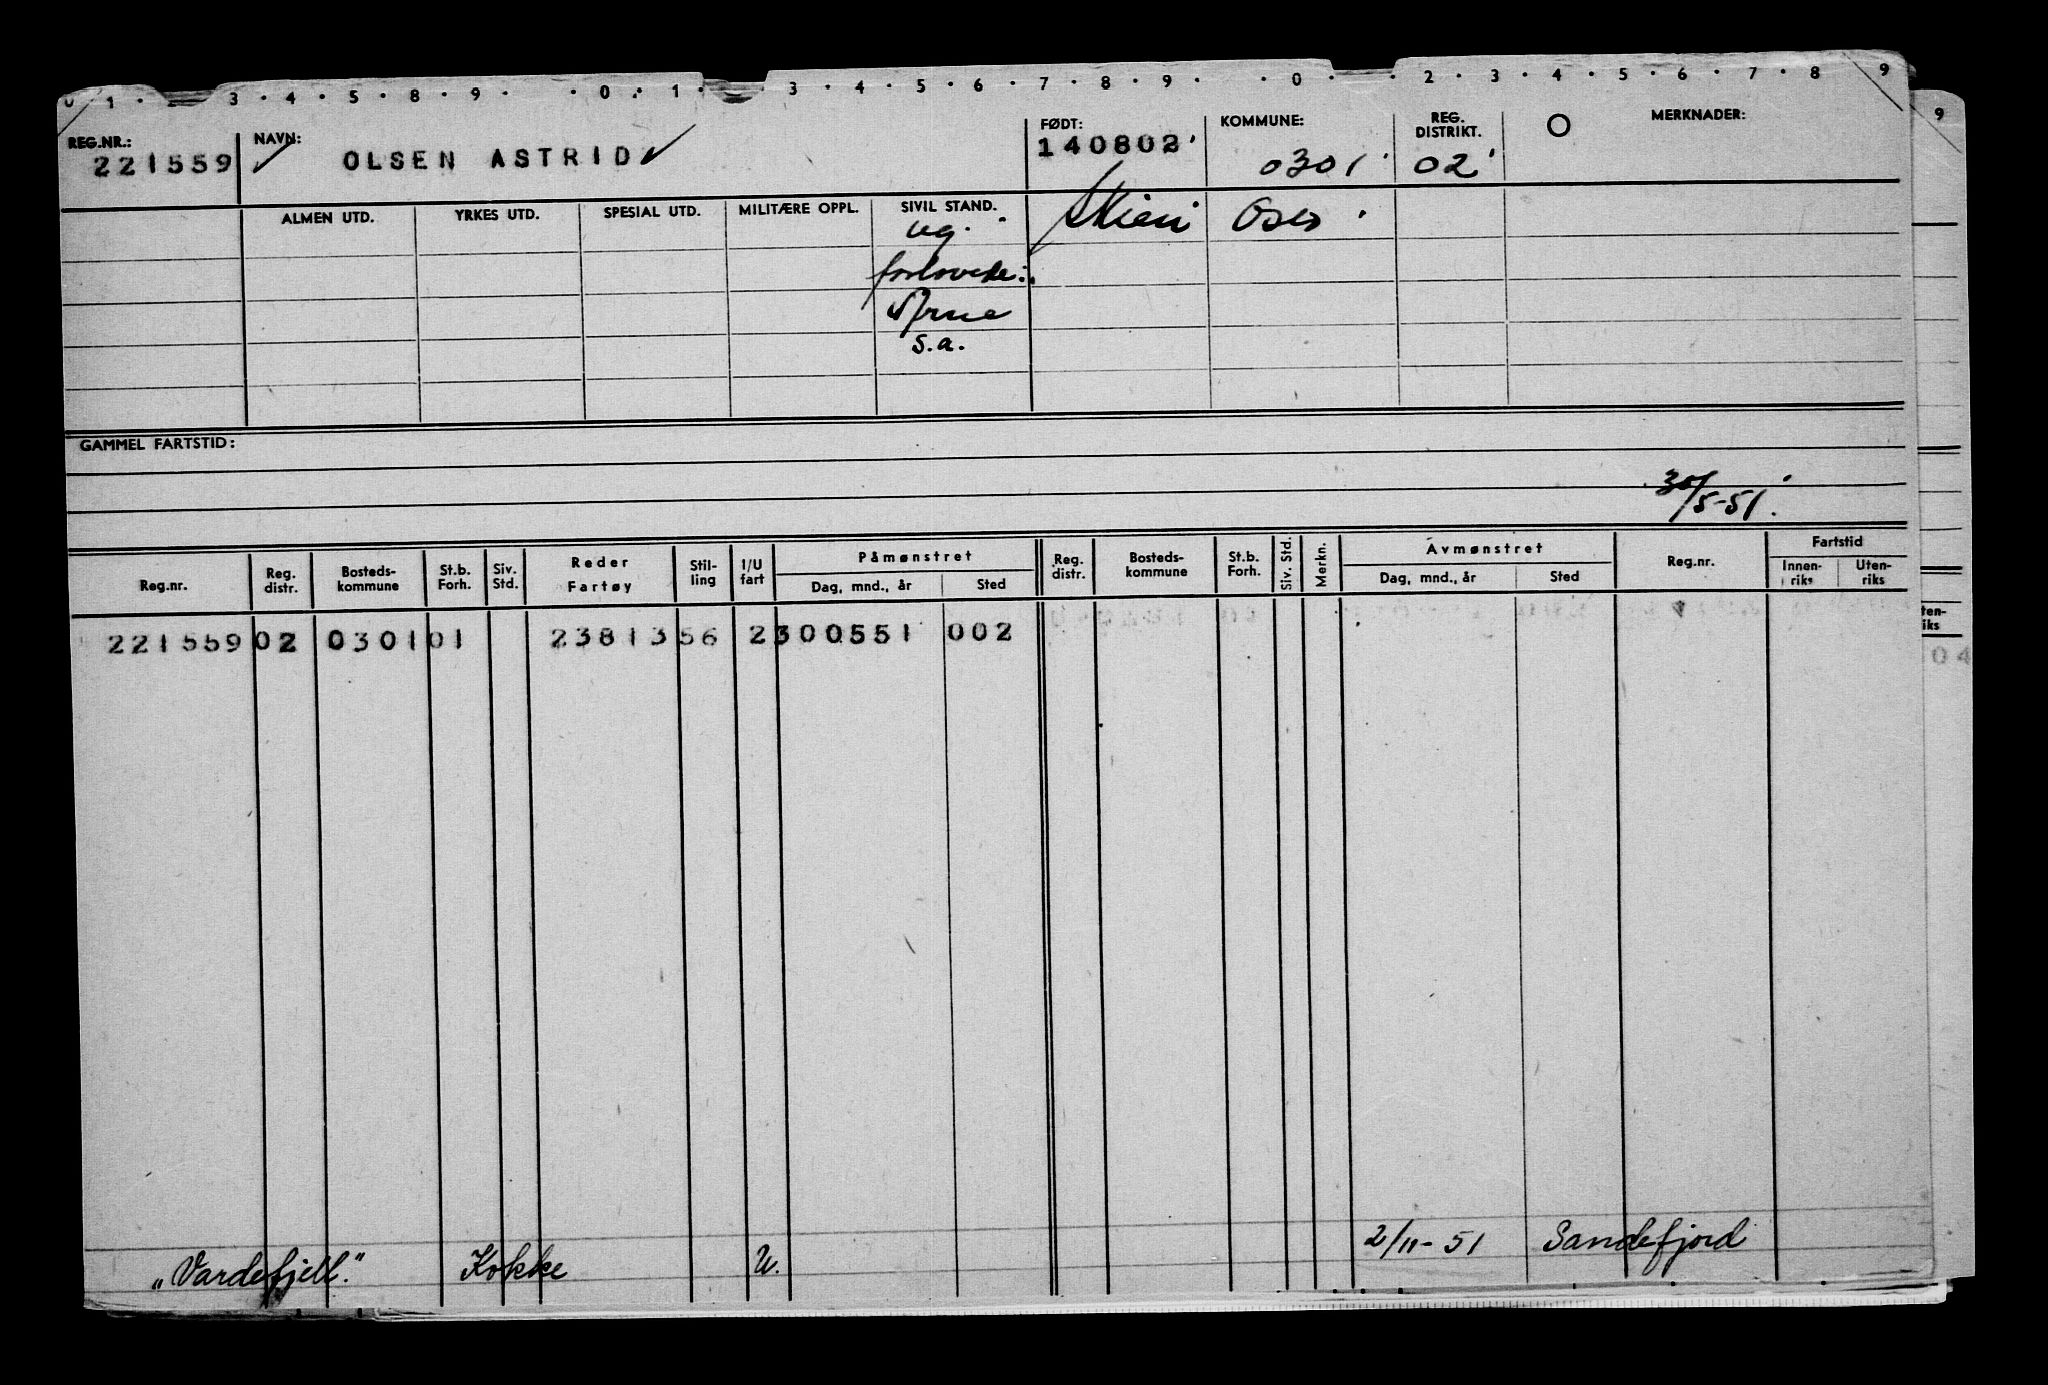 0 1 · 3 · 4 · 5 · 8 · 9 · · 0 · 1 · 3 · 4 · 5 · 6 · 7 · 8 · 9 · · 0 · · 2 · 3 · 4 · 5 · 6 · 7 · 8 9
9
REG.NR.: NAVN: FØDT: KOMMUNE: REG. DISTRIKT. O MERKNADER:
221559 OLSEN ASTRID 140802 0301 02
ALMEN UTD. YRKES UTD. SPESIAL UTD. MILITÆRE OPPL. SIVIL STAND.
ug. Oslo
forlovede:
Arne
s.a.
GAMMEL FARTSTID:
30/5-51.
Reg.nr. Reg. distr. Bosteds- kommune St.b. Forh. Siv. Std. Reder Fartøy Stil- ling I/U fart Påmønstret Dag, mnd., år Sted Reg. distr. Bosteds- kommune St.b. Forh. Siv. Std. Merkn. Avmønstret Dag, mnd., år Sted Reg.nr. Fartstid Innen- riks Uten- riks
ten-
iks
221559 02 0301 01 23813 56 2 300551 002
04
"Vardefjell." Kokke U. 2/11-51 Sandefjord